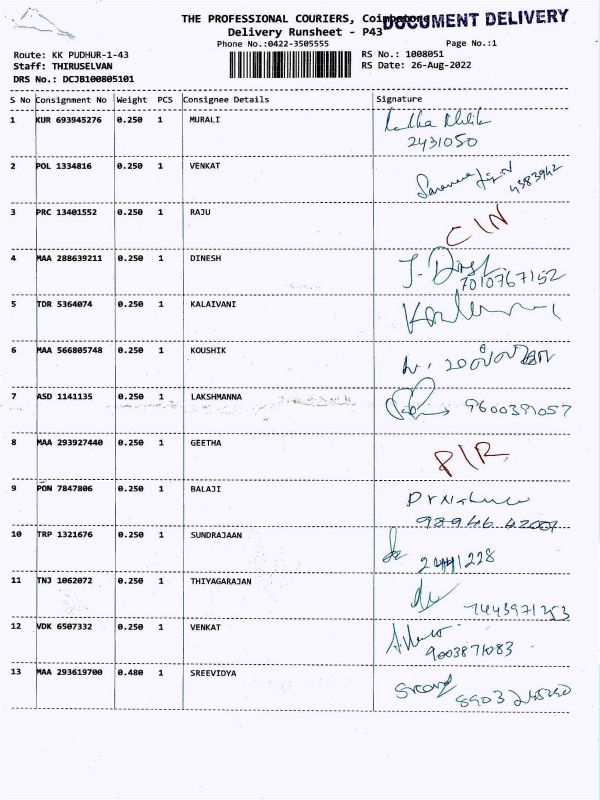 THE PROFESSIONAL COURIERS, Coimbatore
DOCUMENT DELIVERY
Delivery Runsheet - P43
Phone No.:0422-3505555
Page No.:1
Route: KK PUDHUR-1-43
RS No.: 1008051
Staff: THIRUSELVAN
RS Date: 26-Aug-2022
DRS No.: DCJB100805101
S No Consignment No Weight PCS Consignee Details Signature
1 KUR 693945276 0.250 1 MURALI
2431050
2 POL 1334816 0.250 1 VENKAT
4383942
3 PRC 13401552 0.250 1 RAJU
C I N
4 MAA 288639211 0.250 1 DINESH
7010767152
5 TDR 5364074 0.250 1 KALAIVANI
6 MAA 566805748 0.250 1 KOUSHIK
7 ASD 1141135 0.250 1 LAKSHMANNA 9600391057
8 MAA 293927440 0.250 1 GEETHA
P I R
9 PON 7847806 0.250 1 BALAJI
10 TRP 1321676 0.250 1 SUNDRAJAAN
2441228
11 TNJ 1062072 0.250 1 THIYAGARAJAN
12 VDK 6507332 0.250 1 VENKAT
9003871083
13 MAA 293619700 0.480 1 SREEVIDYA